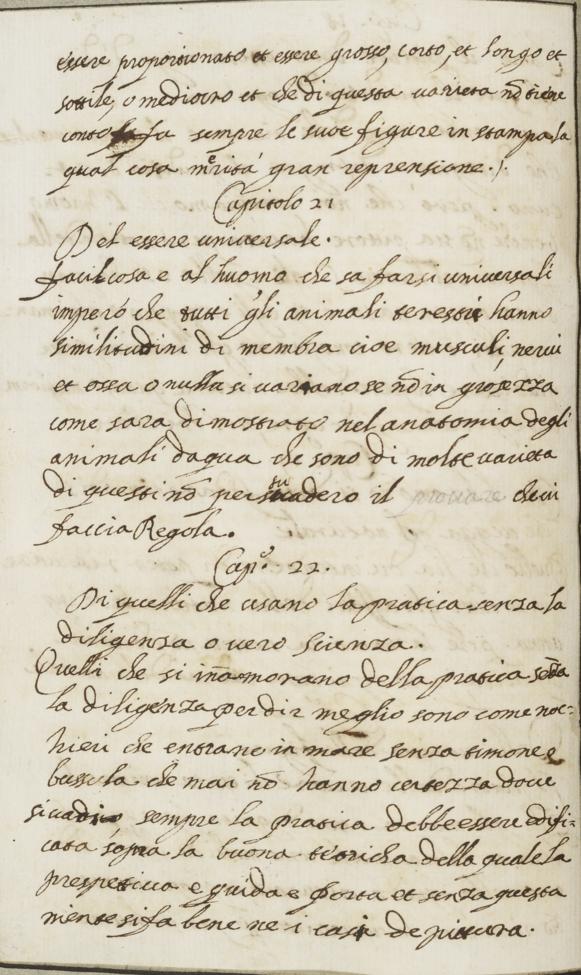 essere proportionato et essere grosso, corto, et longo et
sottile, o mediocro et che di questa varieta nō tiene
conto fa sempre le sue figure in stampa la
qual cosa merita gran reprensione.
Capitolo 21
Del essere universale.
facil cosa e al huomo che sa farsi universali
imperó che tutti gli animali terestri hanno
similitudini di membra cioe musculi nervi
et ossa o nulla si variano se nō in grosezza
come sara dimostrato nel anatomia degli
animali daqua che sono di molte varieta
di questi nō persuadero il provare che vi
faccia Regola.
Capº. 22.
Di quelli che usano la pratica senza la
diligenza o vero scienza.
Quelli che si inamorano della pratica senza
la diligenza per dir meglio sono come noc=
hieri che entrano in mare senza timone e
bussola che mai nō hanno certezza dove
si vadino sempre la pratica debbe essere edifi=
cata sopra la buona teoricha della quale la
prespetiva e guida e porta et senza questa
niente si fa bene ne i casi de pittura.